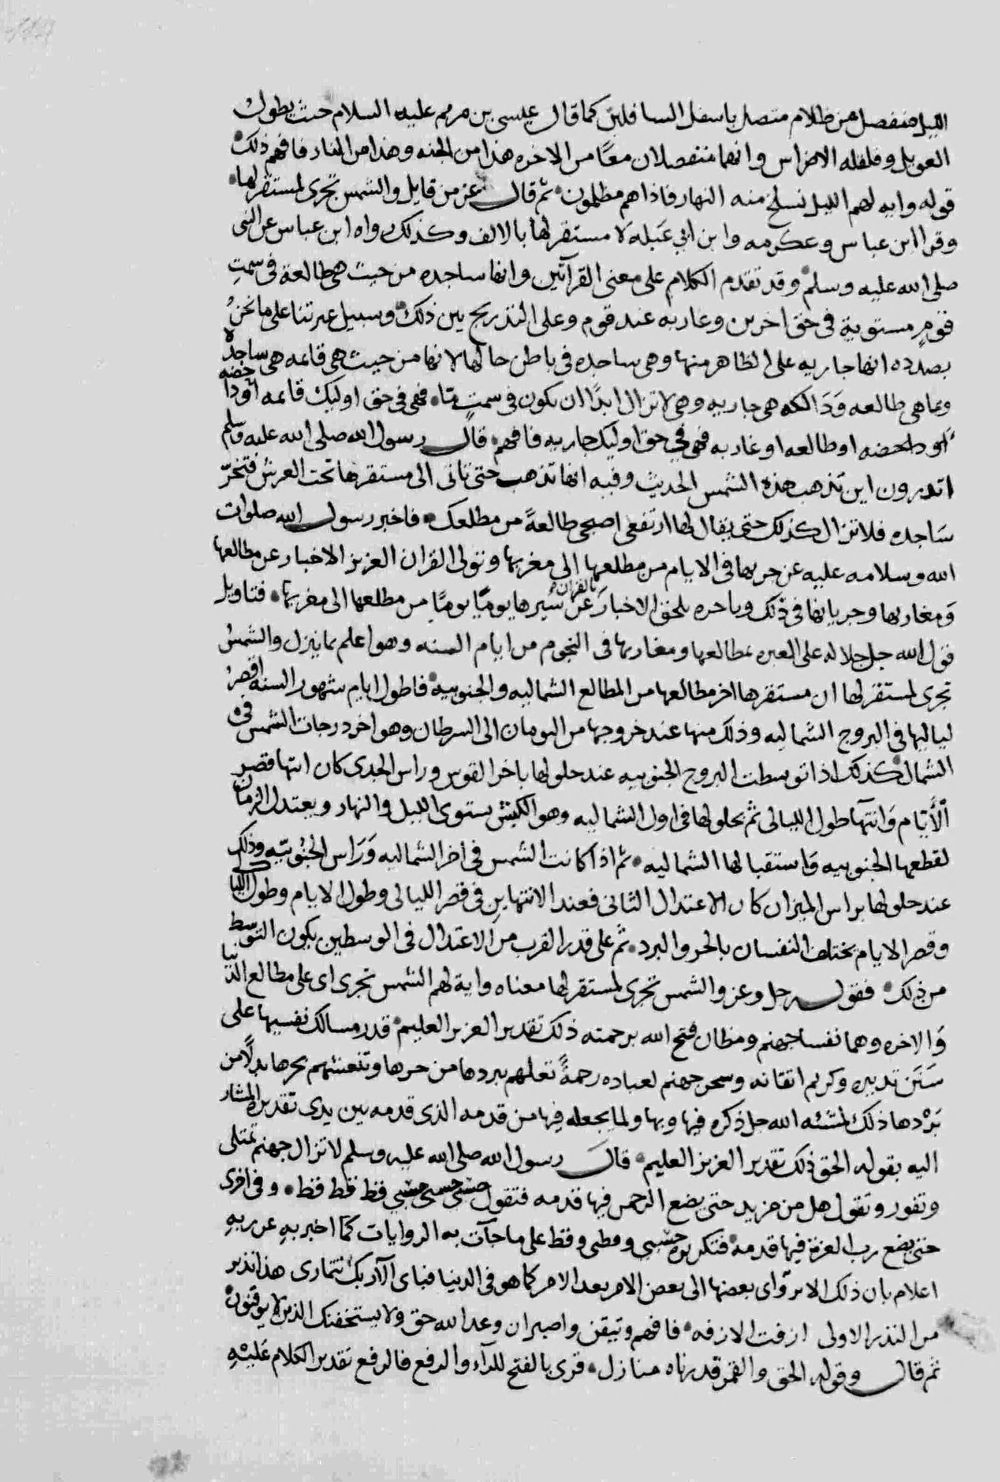 الليل منفصل من ظلام متصل باسفل السافلين كما قال عيسى بن مريم عليه السلام حيث يطول
العويل وقلقله الاضراس وانهما منفصلان معًا من الاخره هذا من الجنه وهذا من النار فافهم ذلك
قوله وايه لهم الليل نسلخ منه النهار فاذا هم مظلمون ثم قال عز من قايل والشمس تجرى لمستقر لها
وقرا ابن عباس وعكرمه وابن ابي عبله لا مستقر لها بالالف وكذلك رواه ابن عباس عن النبى
صلى الله عليه وسلم وقد تقدم الكلام على معنى القرآتين وانها ساجده من حيث هي طالعة في سمت
قوم مستوية في حق اخرين وغاربه عند قوم وعلى التدريج بين ذلك وسبيل عبرتنا على ما نحن
بصدده انها جاريه على الظاهر منها وهى ساجده في باطن حالها لانها من حيث هي قائمه هى ساجدة
وبما هى طالعه ودالكه هى جاريه وهى لا تزال ابدًا ان يكون في سمت ما فهي في حق اوليك قائمه او داحضه
او داحضه او طالعه او غاربه فهي في حق اوليك جاريه فافهم قال رسول الله صلى الله عليه وسلم
اتدرون اين تذهب هذه الشمس الحديث وفيه انها تذهب حتى تاتى الى مستقرها تحت العرش فتخر
ساجده فلا تزال كذلك حتى يقال لها ارتفعى اصبحى طالعة من مطلعك فاخبر رسول الله صلوات
الله وسلامه عليه عن جريها في الايام من مطلعها الى مغربها وتولى القران العزيز الاخبار عن مطالعها
ومغاربها وجريانها في ذلك وباخره يلحق الاخبار بالقران عن سيرها يومًا يومًا من مطلعها الى مغربها فتاويل
قول الله جل جلاله على العبره بمطالعها ومغاربها فى النجوم من ايام السنه وهو اعلم بما ينزل والشمس
تجرى لمستقر لها ان مستقرها اخر مطالعها من المطالع الشماليه والجنوبيه فاطول ايام شهور السنه اقصر
لياليها في البروج الشماليه وذلك منها عند خروجها من التومان الى السرطان وهو اخر درجات الشمس في
الشمال كذلك اذا توسطت البروج الجنوبيه عند حلولها باخر القوس وراس الجدى كان انتها قصر
الأيام وانتها طول الليالى ثم بحلولها في اول الشماليه وهو الكبش يستوى الليل والنهار ويعتدل الزمان
لقطعها الجنوبيه واستقبالها الشماليه ثم اذا كانت الشمس في اخر الشماليه وراس الجنوبيه وذلك
عند حلولها براس الميزان كان الاعتدال الثانى فعند الانتهاين في قصر الليالى وطول الايام وطول الليالى
وقصر الايام يختلف النفسان بالحر والبرد ثم على قدر القرب من الاعتدال في الوسطين يكون التوسط
من ذلك فقوله جل وعز والشمس تجرى لمستقر لها معناه واية لهم الشمس تجرى اى على مطالع الدنيا
والاخره وهما نفسا جهنم ومظان فتح الله برحمته ذلك تقدير العزيز العليم قدر مسالك نفسيها على
سنن تدبيره وكريم اتقانه وسجر جهنم لعباده رحمةً تعلهم ببردها من حرها وتنعشهم بحرها بدلًا من
بردها ذلك لمشئه الله جل ذكره فيها وبها ولما يجعله فيها من قدمه الذى قدمه بين يدى تقديره المشار
اليه بقوله الحق ذلك تقدير العزيز العليم قال رسول الله صلى الله عليه وسلم لا تزال جهنم تمتلى
وتفور وتقول هل من مزيد حتى يضع الرحمن فيها قدمه فتقول حسبى حسبى حسبى قط قط قط وفى اخرى
حتى يضع رب العزة فيها قدمه فتكرر حسبى وقطى وقط على ما جآت به الروايات كما اخبر به عن ربه
اعلام بان ذلك الا تروا اى بعضها الى بعض الامر بعد الامر كما هو في الدنيا فباى آلآ ربك تتمارى هذا نذير
من النذر الاولى ازفت الازفه فافهم وتيقن واصبر ان وعد الله حق ولا يستخفنك الذين لا يوقنون
ثم قال وقوله الحق والقمر قدرناه منازل قرى بالفتح للرآء والرفع فالرفع تقدير الكلام عليه